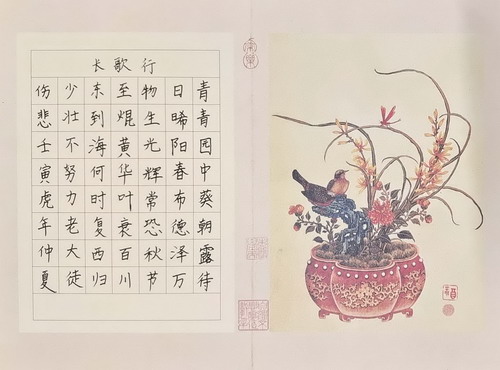 长歌行
青青园中葵朝露待
日晞阳春布德泽万
物生光辉常恐秋节
至焜黄华叶衰百川
东到海何时复西归
少壮不努力老大徒
伤悲壬寅虎年仲夏